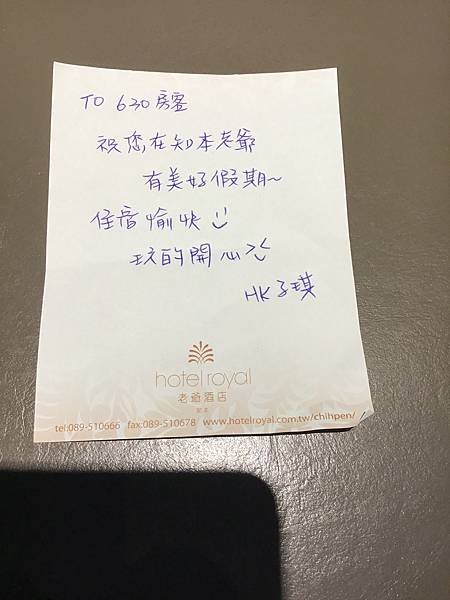 TO 630房客
祝您在知本老爺
有美好假期~
住宿愉快
玩的開心
HK 子琪
hotel royal
老爺酒店
知本
tel:089-510666 fax:089-510678 www.hotelroyal.com.tw/chihpen/